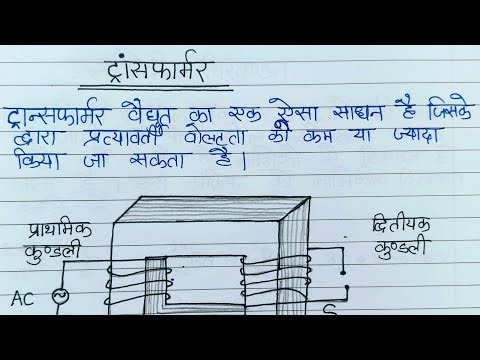 ट्रांसफार्मर
ट्रान्सफार्मर वैद्युत का एक ऐसा साधन है जिसके
द्वारा प्रत्यावर्ती वोल्टता को कम या ज्यादा
किया जा सकता है।
प्राथमिक
कुण्डली
द्वितीयक
कुण्डली
AC
S